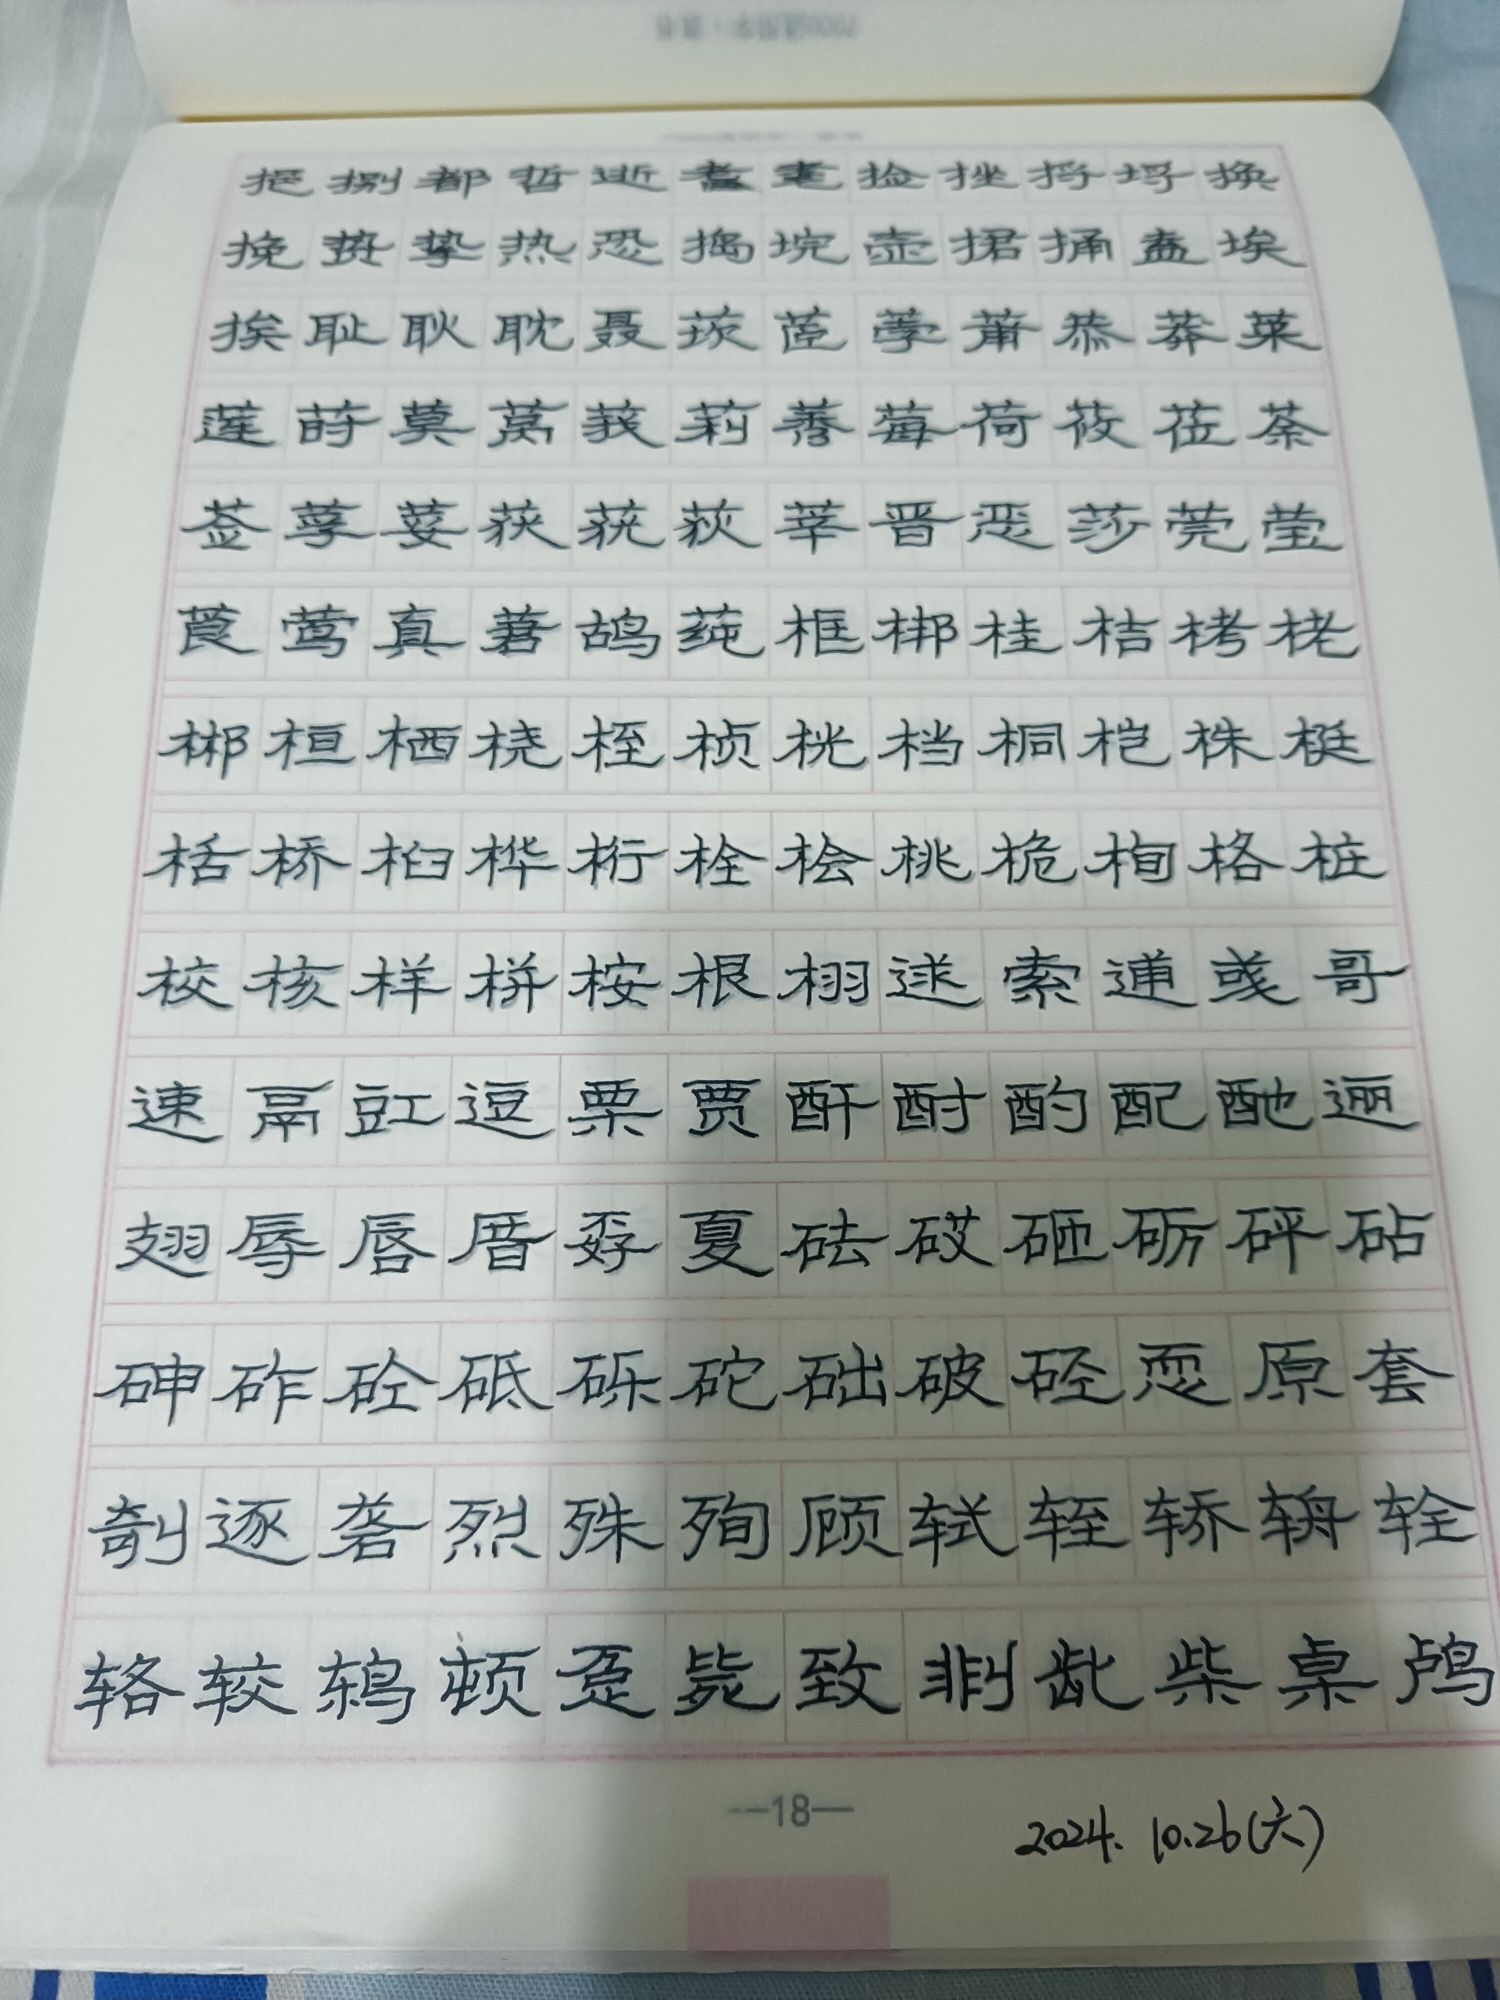 挹捌都哲逝耆耄捡挫捋埒换
挽贽挚热恐捣垸壶捃捅盍埃
挨耻耿耽聂莰茝荸莆恭莽莱
莲莳莫莴莪莉莠莓荷莜莅荼
莶莩荽获莸荻莘晋恶莎莞莹
莨莺真莙鸪莼框梆桂桔栲栳
郴桓栖桡桎桢桄档桐桤株梃
栝桥桕桦桁栓桧桃桅栒格桩
校核样栟桉根栩逑索逋彧哥
速鬲豇逗栗贾酐酎酌配酏逦
翅辱唇厝孬夏砝砹砸砺砰砧
砷砟砼砥砾砣础破硁恧原套
剞逐砻烈殊殉顾轼轾轿辀辁
辂较鸫顿趸毙致剕龀柴桌鸬
—18—
2024.10.26(六)